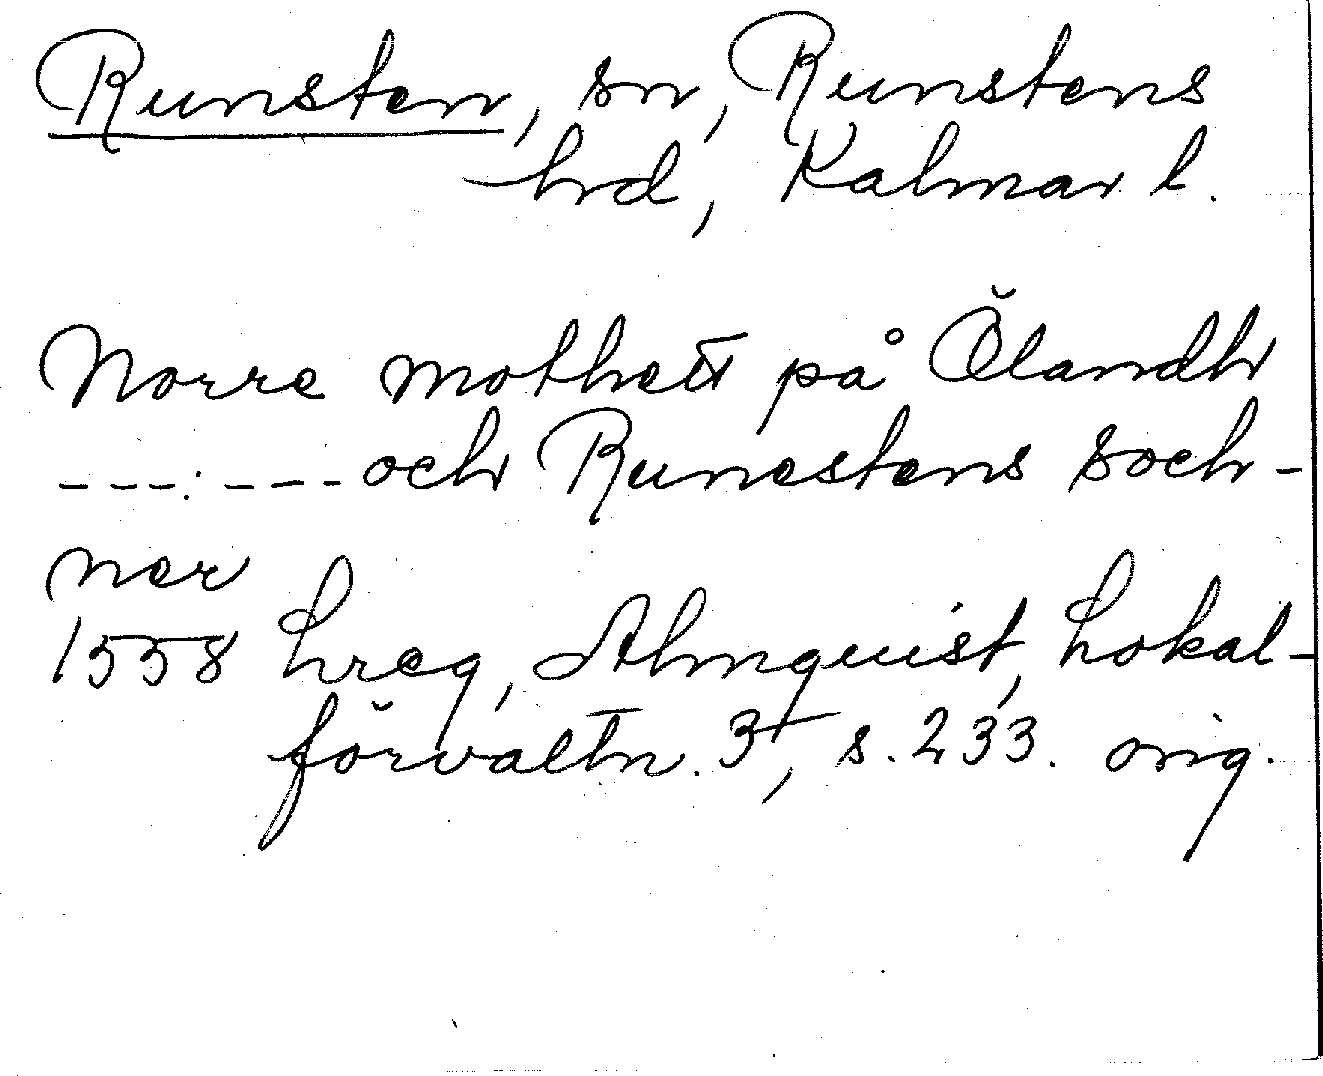 Runsten, sn, Runstens
hrd, Kalmar l.
Norre mothett på Ölandh
------ och Runestens soch-
ner
1558 Lreg, Almquist, Lokal-
förvaltn. 3, s. 233. orig.